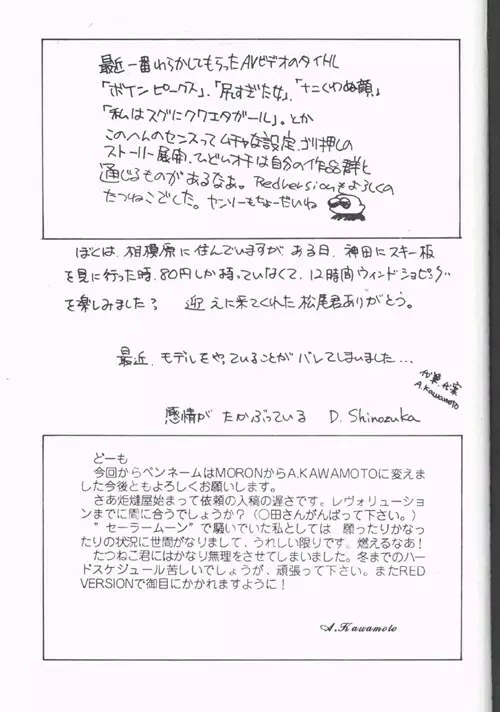 最近一番わらかしてもらったAVビデオのタイトル
「ボインピークス」、「尻すぎた女」、「ナニくわぬ顔」
「私はスグにクワエタガール」。とか
このへんのセンスってムチャな設定、ゴリ押しの
ストーリー展開、ひどいオチは自分の作品群と
通じるものがあるなあ。Redversionもよろしくの
たつねこでした。ヤンソーもちょーだいね
ぼくは、相模原に住んでいますが ある日、神田にスキー板
を見に行った時、80円しか持っていなくて、12時間ウィンドショピング
を楽しみました? 迎えに来てくれた松尾君ありがとう。
最近、モデルをやっていることがバレてしまいました…
代筆
A.Kawamoto
感情がたかぶっている D. Shinozuka
どーも
今回からペンネームはMORONからA.KAWAMOTOに変えま
した今後ともよろしくお願いします。
さあ炬燵屋始まって依頼の入稿の遅さです。レヴォリューショ
ンまでに間に合うでしょうか?(〇田さんがんばって下さい。)
"セーラームーン"で騒いでいた私としては 願ったりかなっ
たりの状況に世間がなりまして、うれしい限りです。燃えるなあ!
たつねこ君にはかなり無理をさせてしまいました。冬までのハー
ドスケジュール苦しいでしょうが、頑張って下さい。またRED
VERSIONで御目にかかれますように!
A.Kawamoto